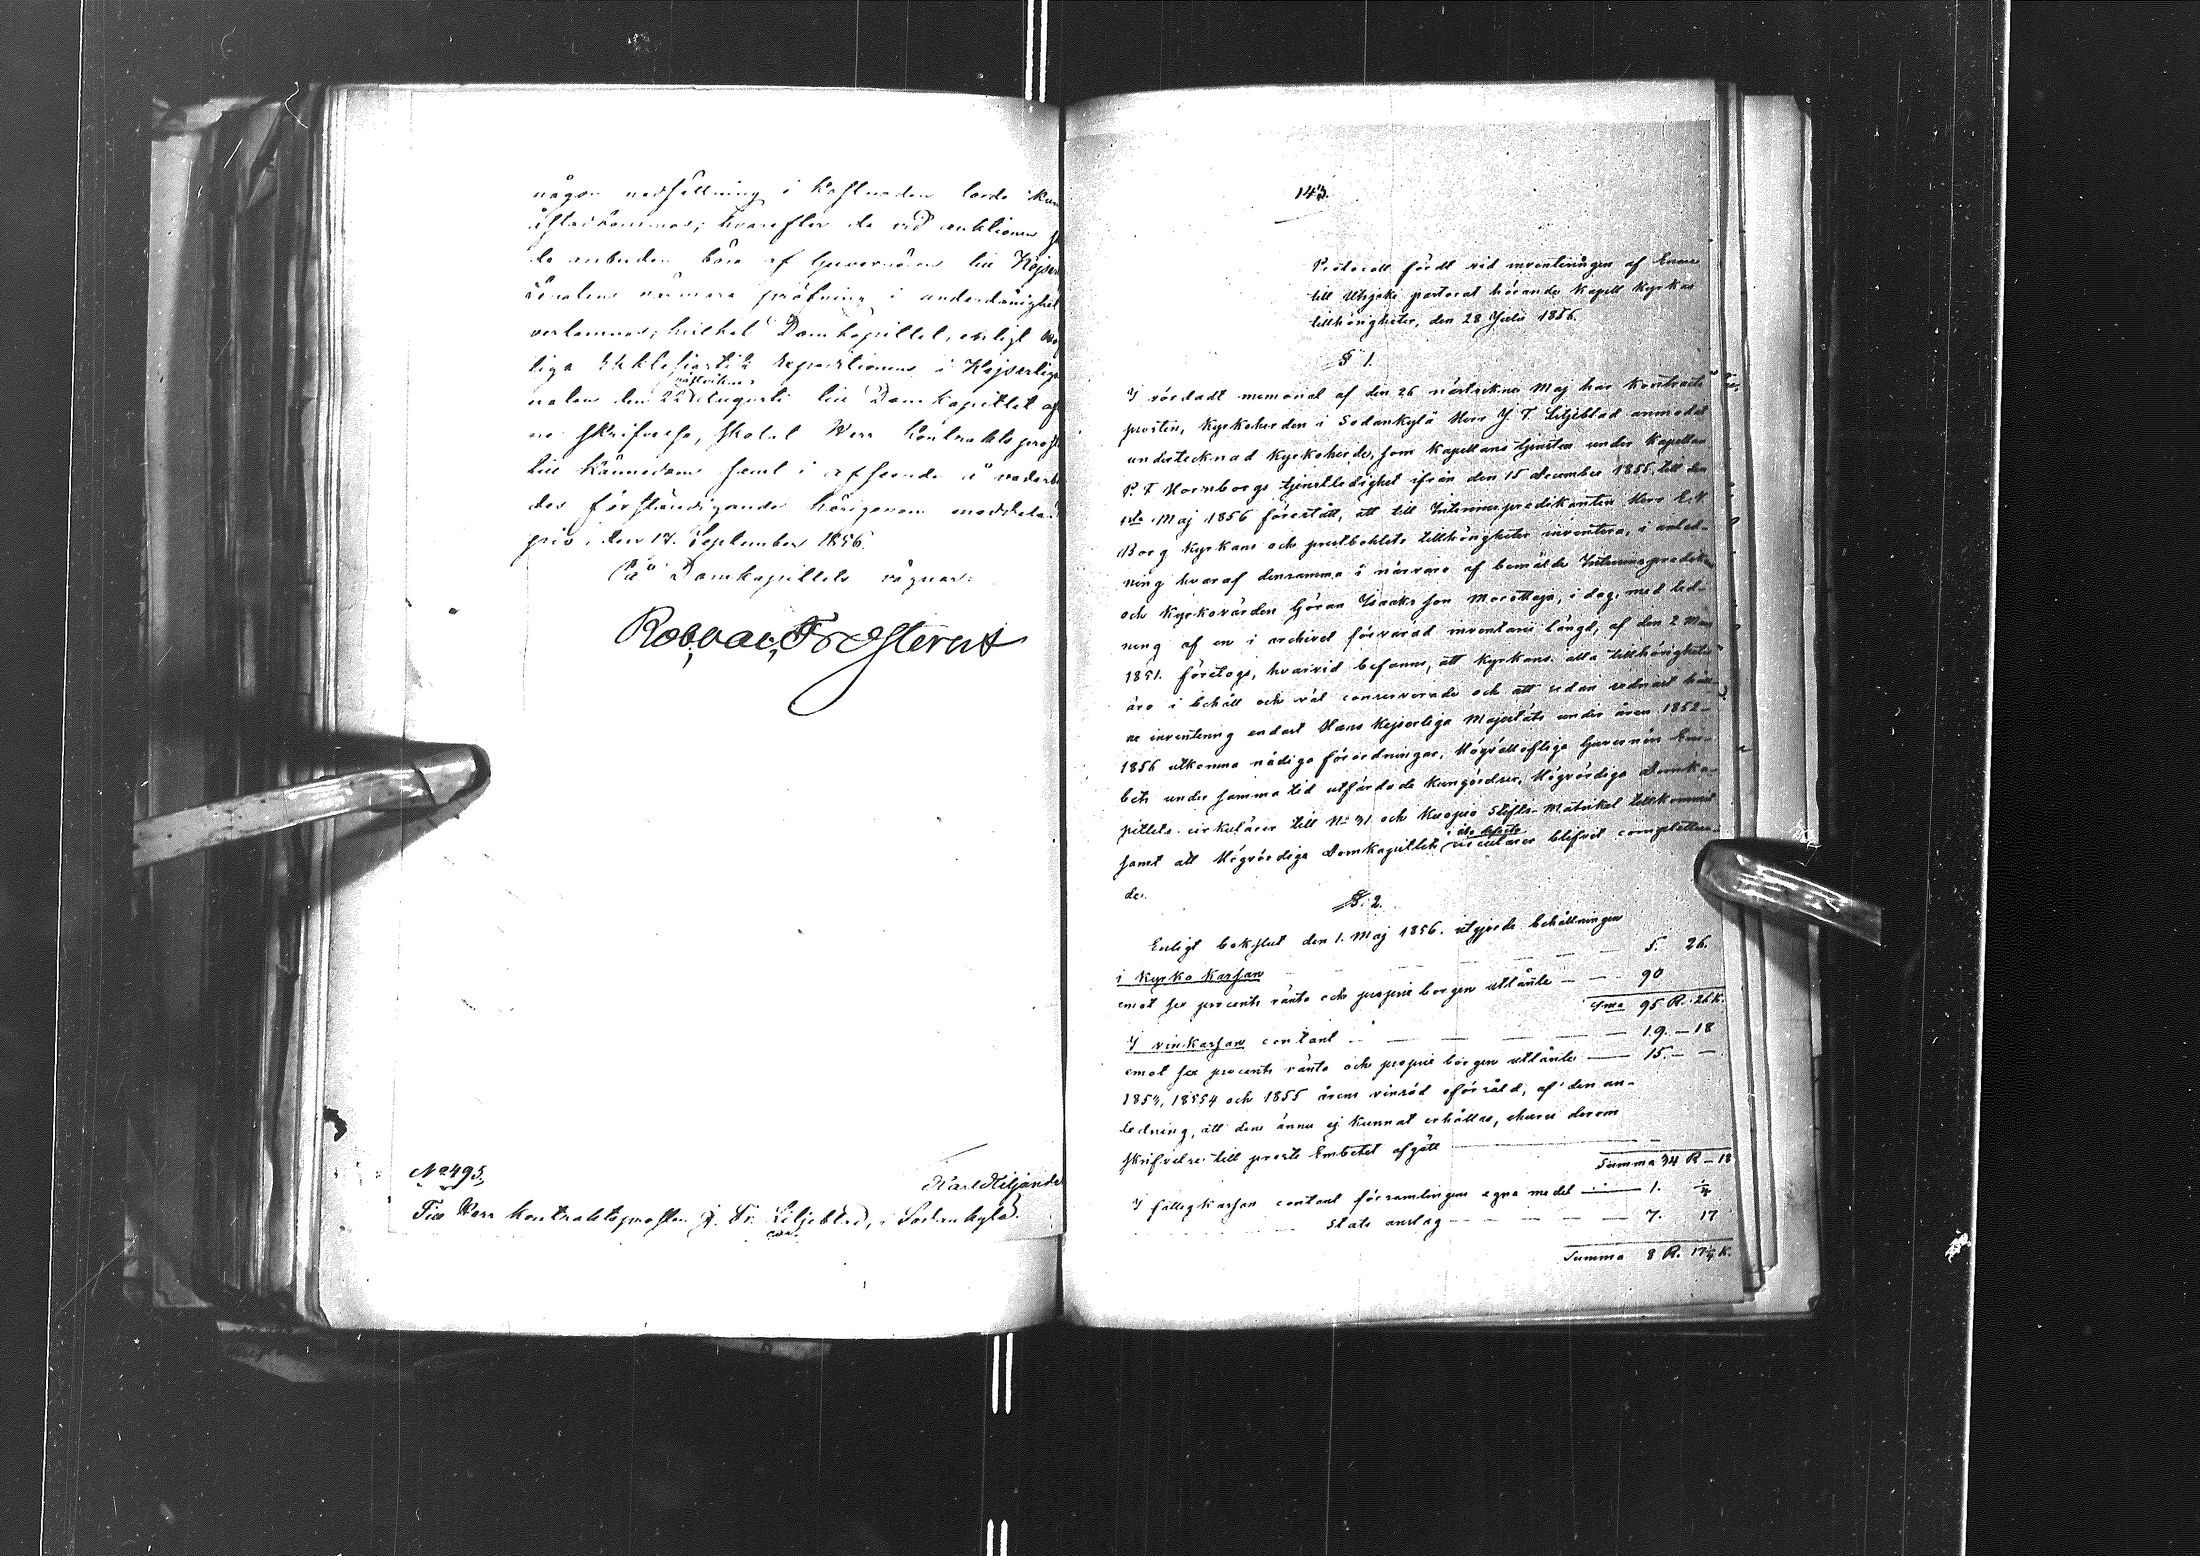 någon nedsättning i kostnaden torde kun
åstadkommas, hvarefter de vid auktionen
de anbuden böra af Guvernören till Kejser
Senatens närmare pröfning i underdånighet
öfverlemnas; hvilket Domkapitlet, enligt
liga Ecklesiastik Expeditionens i Kejserliga
naten den 22 Augusti till Domkapitlet
skrifvelse, skolat Herr Kontraktsprost
till kännedom samt i afseende å vederbö
des förständigande härigenom meddela.
pio, den 17. September 1856.
På Domkapitlets vägnar:
Rob. Val. Frosterus
Karl Heljander
No 495.
Till Herr Kontraktsprosten J. Fr. Liljeblad, i Sodankylä.
143.
Protocoll fördt vid inventeringen af Enare
till Utsjoki pastorat hörande Kapell Kyrkas
tillhörigheter, den 28 Julii 1856.
§ 1.
I vördadt memorial af den 26 nästvekne Maj har Kontrakts
prosten, Kyrkoherden i Sodankylä Herr J F. Liljeblad anmodat
undertecknad Kyrkoherde, som Kapellans tjensten under Kapellan
P. F Hornborgs tjenstledighet ifrån den 15 December 1855, till den
1sta Maj 1856 förestått, att till Interimspredikanten Herr E. N.
Borg Kyrkans och prestbohlets tillhörigheter inventera, i anled-
ning hvaraf densamma i närvaro af bemälde Interimspredikan
och Kyrkovärden Göran Isaksson Morottaja, i dag, med led-
ning af en i archivet förvarad inventarii längd, af den 2 Maj
1851. företogs, hvarvid befanns, att Kyrkans alla tillhörigheter
äro i behåll och väl conserverade och att sedan sednast håll
ne inventering endast Hans Kejserliga Majestäts under åren 1852-
1856 utkomna nådiga förordningar, Högvällofliga Guvernörs Em-
bets under samma tid utfärdade kungörelser, Högvördiga Domka-
pitlets cirkulärer till No 31 och Kuopio Stifts-Matrikel tillkommit
samt att Högvördiga Domkapitlets cirkulärer blifvit completera-
de.
§. 2.
Enligt bokslut den 1. Maj 1856. utgjorde behållningen
i Kyrko Kassan — — — 5. 26.
emot sex procents ränta och proprie borgen utlånte — — 90
Sma 95 R. 26 K.
I vinkassan contant — — — 19. — 18
emot sex procents ränta och proprie borgen utlånte — 15. — —
1853, 18554 och 1855 årens vinsäd oförsåld, af den an-
ledning, att den ännu ej kunnat erhållas, ehuru derom
skrifvelse till prosts Embetet afgått
Summa 34 R — 18
I fattigkassan contant församlingens egna medel — 1. ¼
Stats anslag — — — 7. 17
Summa 8 R. 17¼ K.